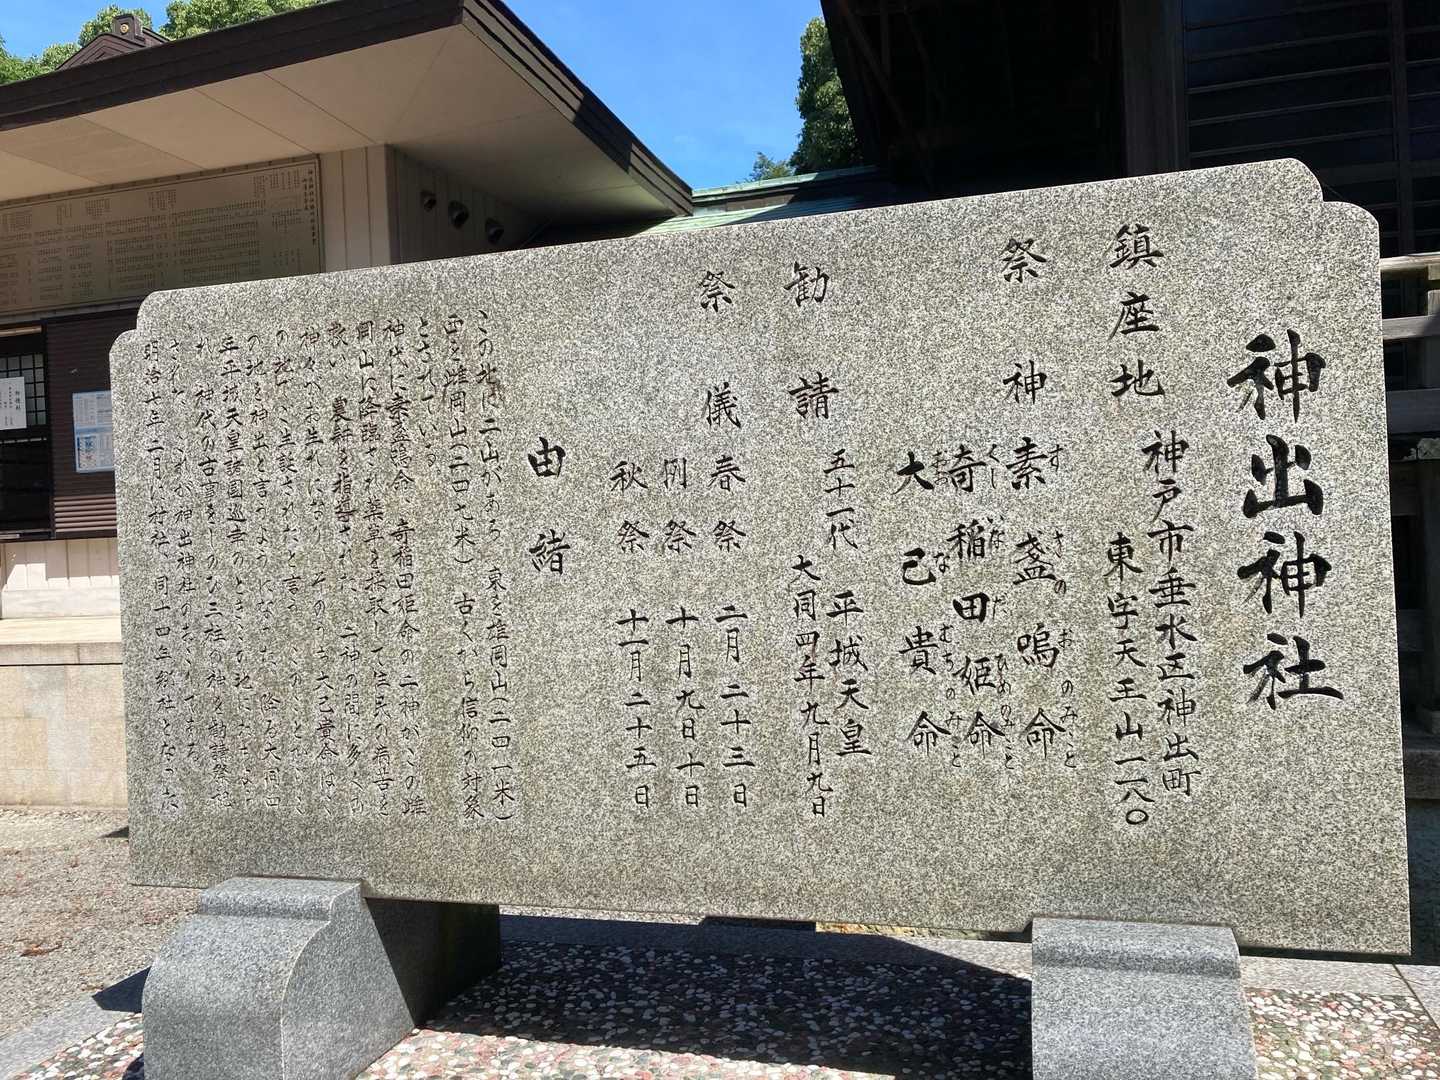 神出神社
鎮座地 神戸市垂水区神出町
東字天王山一一八〇
祭神 素盞嗚命
すさのおのみこと
奇稲田姫命
くしいなだひめのみこと
大己貴命
おおなむちのみこと
勧請 五十一代 平城天皇
大同四年九月九日
祭儀 春祭 二月二十三日
例祭 十月九日十日
秋祭 十一月二十五日
由緒
この地は二山があろ 東を雄岡山(二四一米)
西を雌岡山(二四九米) 古くから信仰の対象
とされている。
神代に素盞嗚命、奇稲田姫命の二神がこの雌
岡山に降臨され薬草を採取して住民の病苦を
救い、農耕を指導された 二神の間に多くの
神々べお生れになり、そのうち大己貴命は、
の地で生誕されたと言う、このことから
の地を神出と言うようになった、降る大同四
年平城天皇諸国巡幸のときこの地に
れ、神代の古事をしのび三柱の神を勧請祭祀
された これが神出神社のおこりである。
明治七年二月に村社、同一四年郷社となった